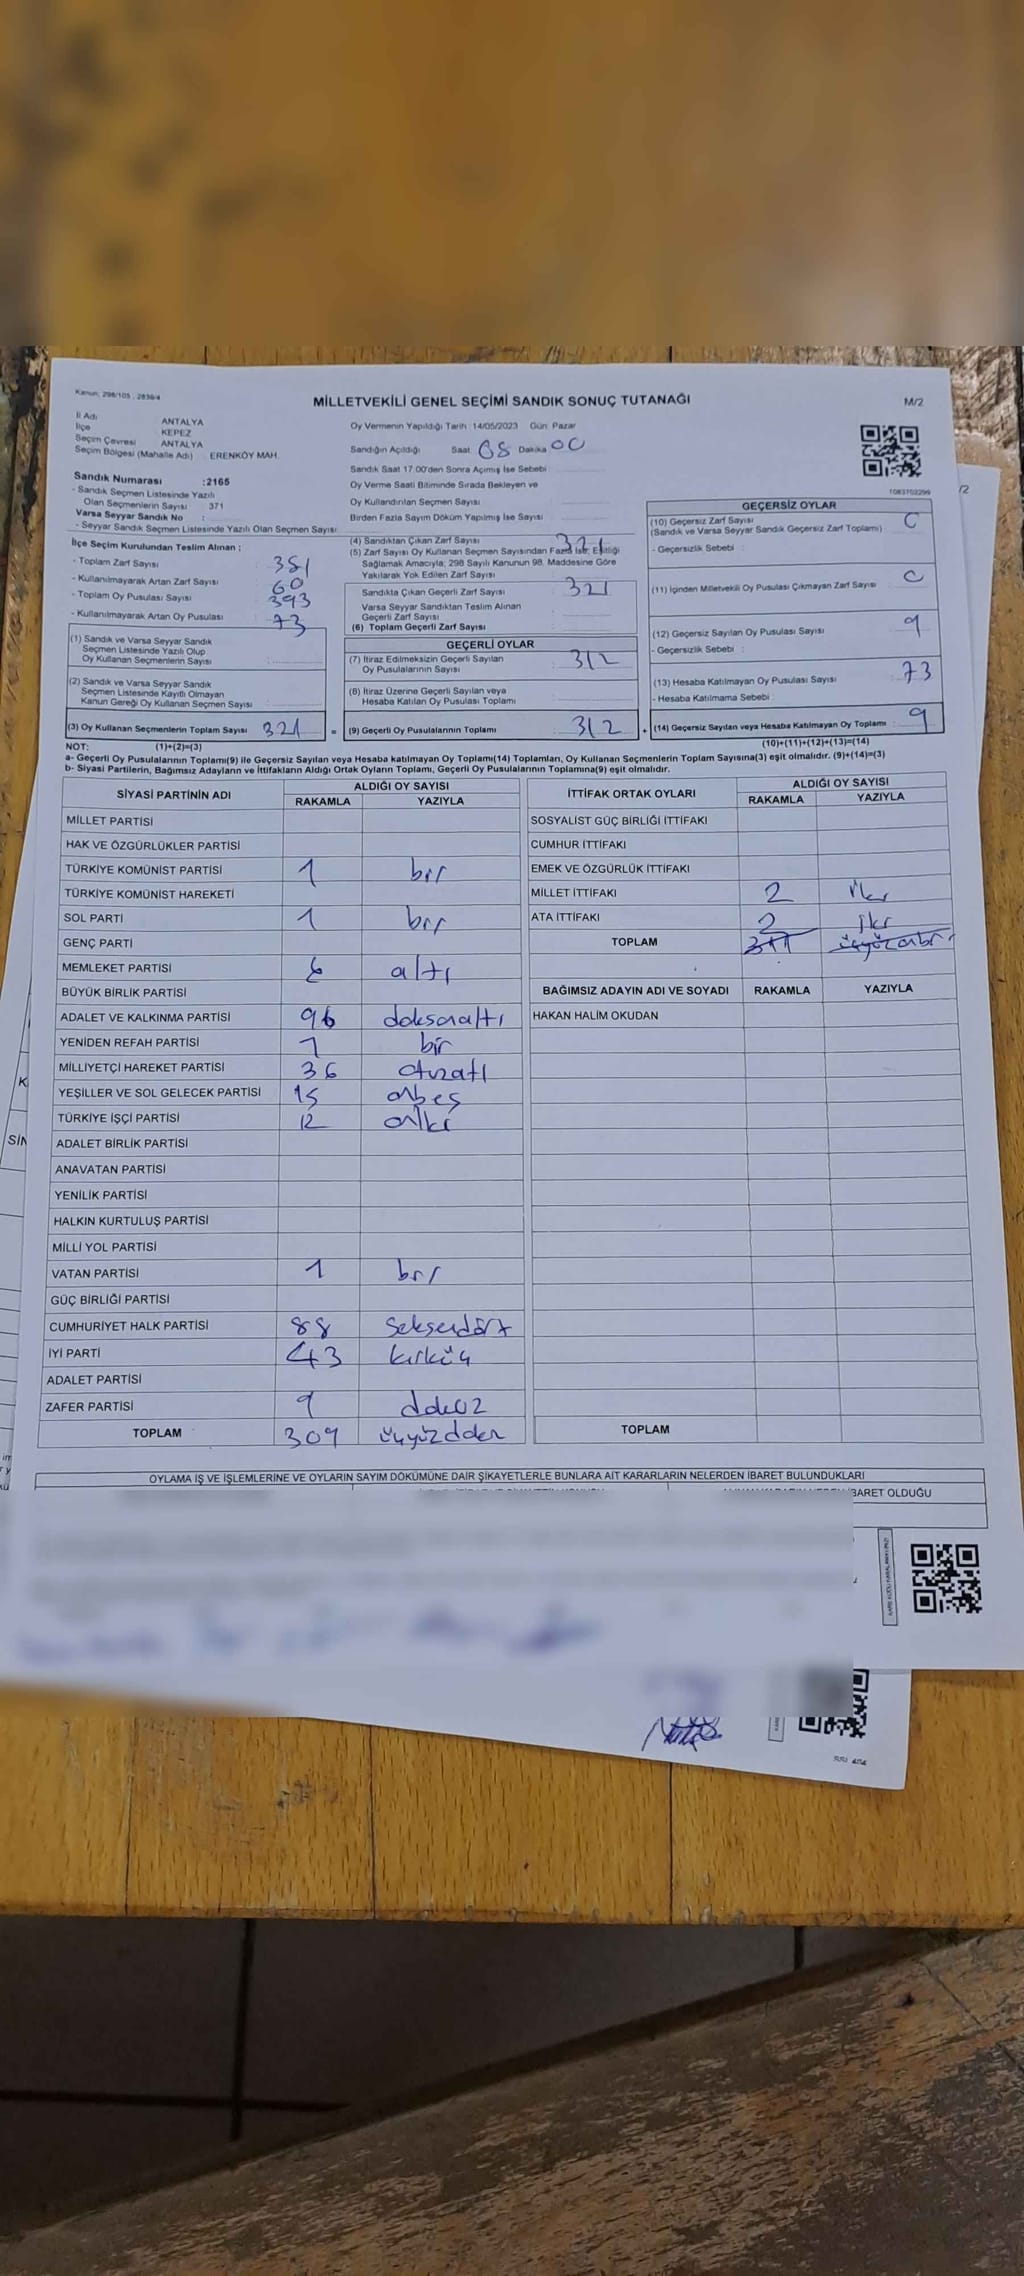 Kanun: 298/105 , 2839/4
MİLLETVEKİLİ GENEL SEÇİMİ SANDIK SONUÇ TUTANAĞI
M/2
İl Adı ANTALYA
İlçe KEPEZ
Seçim Çevresi ANTALYA
Seçim Bölgesi (Mahalle Adı) : ERENKÖY MAH.
Oy Vermenin Yapıldığı Tarih :14/05/2023 Gün: Pazar
Sandığın Açıldığı Saat: 08 Dakika 00
Sandık Saat 17:00'den Sonra Açımış İse Sebebi
Oy Verme Saati Bitiminde Sırada Bekleyen ve
Oy Kullandırılan Seçmen Sayısı
Birden Fazla Sayım Döküm Yapılmış İse Sayısı
1083702299
Sandık Numarası :2165
- Sandık Seçmen Listesinde Yazılı
Olan Seçmenlerin Sayısı 371
Varsa Seyyar Sandık No :
- Seyyar Sandık Seçmen Listesinde Yazılı Olan Seçmen Sayısı
İlçe Seçim Kurulundan Teslim Alınan ;
- Toplam Zarf Sayısı : 381
- Kullanılmayarak Artan Zarf Sayısı : 60
- Toplam Oy Pusulası Sayısı : 393
- Kullanılmayarak Artan Oy Pusulası : 73
(1) Sandık ve Varsa Seyyar Sandık
Seçmen Listesinde Yazılı Olup
Oy Kullanan Seçmenlerin Sayısı :
(2) Sandık ve Varsa Seyyar Sandık
Seçmen Listesinde Kayıtlı Olmayan
Kanun Gereği Oy Kullanan Seçmen Sayısı :
(3) Oy Kullanan Seçmenlerin Toplam Sayısı 321
(4) Sandıktan Çıkan Zarf Sayısı 321
(5) Zarf Sayısı Oy Kullanan Seçmen Sayısından Fazla İse; Eşitliği
Sağlamak Amacıyla; 298 Sayılı Kanunun 98. Maddesine Göre
Yakılarak Yok Edilen Zarf Sayısı
Sandıkta Çıkan Geçerli Zarf Sayısı 321
Varsa Seyyar Sandıktan Teslim Alınan
Geçerli Zarf Sayısı
(6) Toplam Geçerli Zarf Sayısı
GEÇERLİ OYLAR
(7) İtiraz Edilmeksizin Geçerli Sayılan
Oy Pusulalarının Sayısı 312
(8) İtiraz Üzerine Geçerli Sayılan veya
Hesaba Katılan Oy Pusulası Toplamı
= (9) Geçerli Oy Pusulalarının Toplamı 312 +
GEÇERSİZ OYLAR
(10) Geçersiz Zarf Sayısı
(Sandık ve Varsa Seyyar Sandık Geçersiz Zarf Toplamı)
- Geçersizlik Sebebi :
(11) İçinden Milletvekili Oy Pusulası Çıkmayan Zarf Sayısı
(12) Geçersiz Sayılan Oy Pusulası Sayısı 9
- Geçersizlik Sebebi :
(13) Hesaba Katılmayan Oy Pusulası Sayısı 73
- Hesaba Katılmama Sebebi :
(14) Geçersiz Sayılan veya Hesaba Katılmayan Oy Toplamı 9
NOT: (1)+(2)=(3)
(10)+(11)+(12)+(13)=(14)
a- Geçerli Oy Pusulalarının Toplamı(9) ile Geçersiz Sayılan veya Hesaba katılmayan Oy Toplamı(14) Toplamları, Oy Kullanan Seçmenlerin Toplam Sayısına(3) eşit olmalıdır. (9)+(14)=(3)
b- Siyasi Partilerin, Bağımsız Adayların ve İttifakların Aldığı Ortak Oyların Toplamı, Geçerli Oy Pusulalarının Toplamına(9) eşit olmalıdır.
SİYASİ PARTİNİN ADI ALDIĞI OY SAYISI
RAKAMLA YAZIYLA
MİLLET PARTİSİ
HAK VE ÖZGÜRLÜKLER PARTİSİ
TÜRKİYE KOMÜNİST PARTİSİ 1 bir
TÜRKİYE KOMÜNİST HAREKETİ
SOL PARTİ 1 bir
GENÇ PARTİ
MEMLEKET PARTİSİ 6 altı
BÜYÜK BİRLİK PARTİSİ
ADALET VE KALKINMA PARTİSİ 96 doksanaltı
YENİDEN REFAH PARTİSİ 1 bir
MİLLİYETÇİ HAREKET PARTİSİ 36 otuzaltı
YEŞİLLER VE SOL GELECEK PARTİSİ 15 onbeş
TÜRKİYE İŞÇİ PARTİSİ 12 oniki
ADALET BİRLİK PARTİSİ
ANAVATAN PARTİSİ
YENİLİK PARTİSİ
HALKIN KURTULUŞ PARTİSİ
MİLLİ YOL PARTİSİ
VATAN PARTİSİ 1 bir
GÜÇ BİRLİĞİ PARTİSİ
CUMHURİYET HALK PARTİSİ 88 seksendört
İYİ PARTİ 43 kırküç
ADALET PARTİSİ
ZAFER PARTİSİ 9
TOPLAM 309
İTTİFAK ORTAK OYLARI ALDIĞI OY SAYISI
RAKAMLA YAZIYLA
SOSYALİST GÜÇ BİRLİĞİ İTTİFAKI
CUMHUR İTTİFAKI
EMEK VE ÖZGÜRLÜK İTTİFAKI
MİLLET İTTİFAKI 2 iki
ATA İTTİFAKI 2 iki
TOPLAM
BAĞIMSIZ ADAYIN ADI VE SOYADI RAKAMLA YAZIYLA
HAKAN HALİM OKUDAN
TOPLAM
OYLAMA İŞ VE İŞLEMLERİNE VE OYLARIN SAYIM DÖKÜMÜNE DAİR ŞİKAYETLERLE BUNLARA AİT KARARLARIN NELERDEN İBARET BULUNDUKLARI
İBARET OLDUĞU
/2
SİN